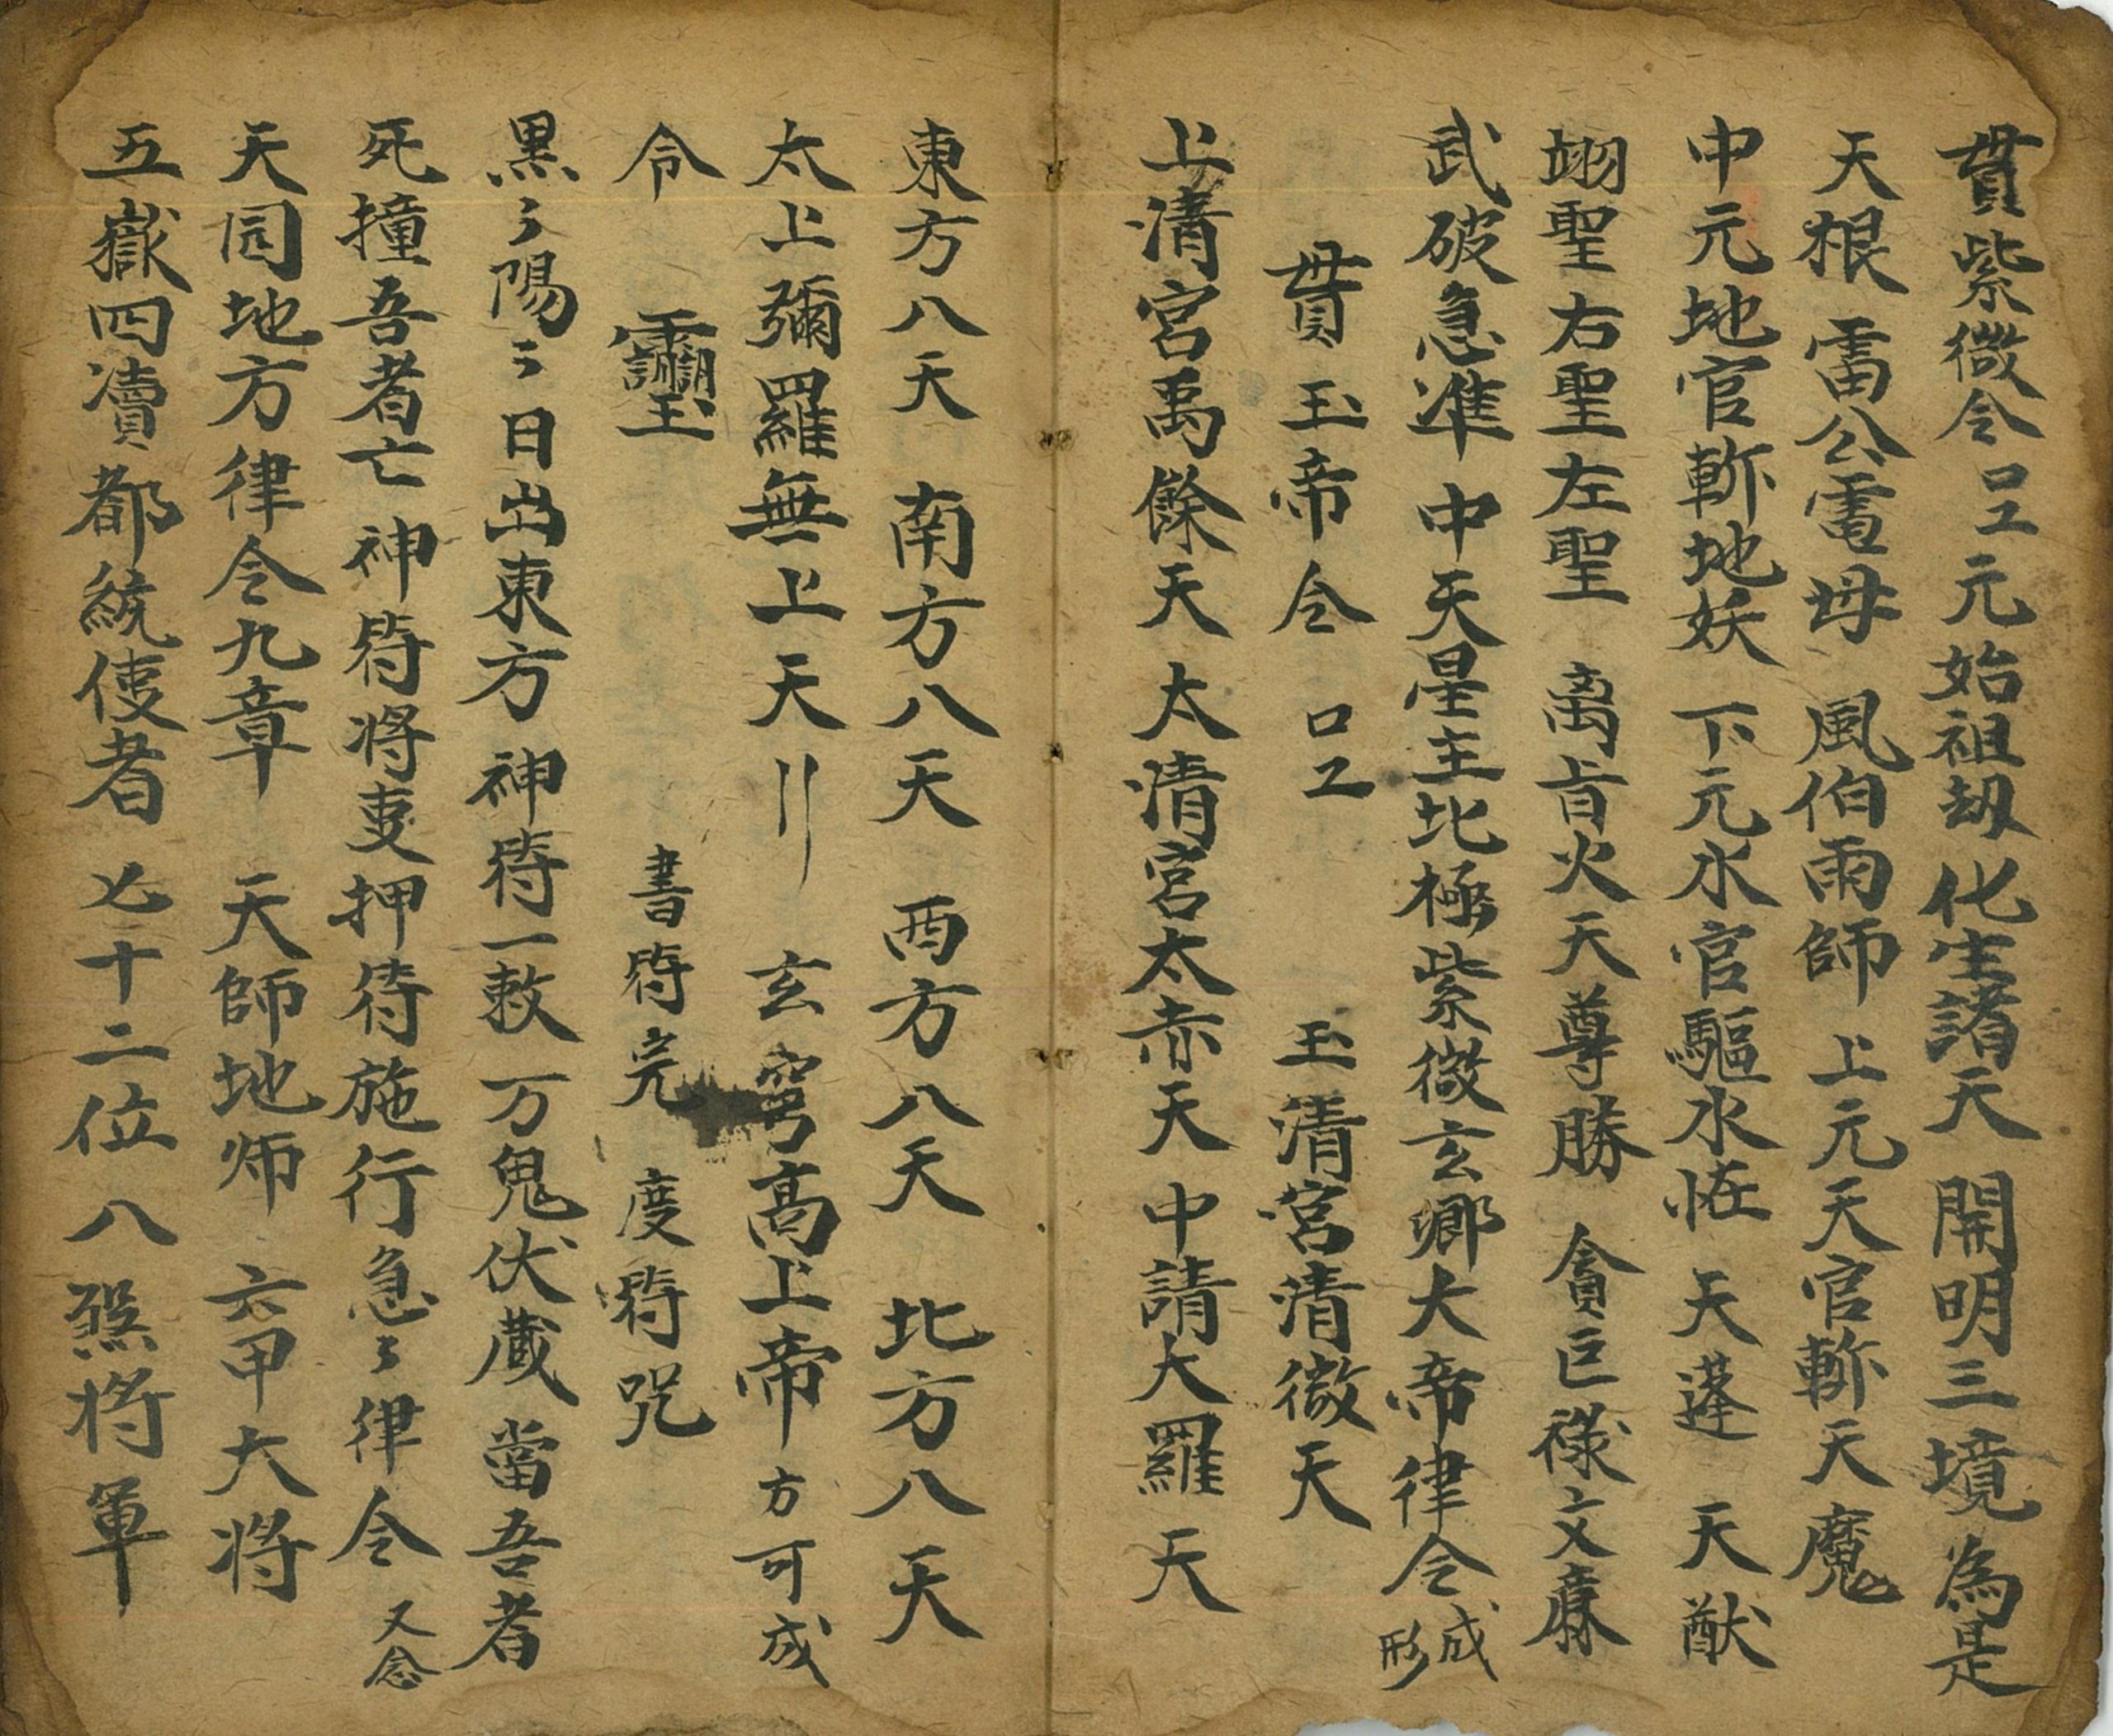 貫紫微令口工元始祖刼化生諸天開明三境為是
天根雷公電母風伯雨師上元天官斬天魔
中元地官斬地妖下元水官驅水怪天蓬天猷
翊聖右聖左聖 离肓火天尊勝貪巨祿文廉
武破急准中天星主北極紫微玄鄉大帝律令成形
貫玉帝令口工 玉清宮清微天
上清宮禹餘天太清宮太赤天中請大羅天
東方八天 南方八天 西方八天 北方八天
太上彌羅無上天 玄穹高上帝方可成
令 書符完 度符咒
黑〻陽〻日出東方神符一敕万鬼伏藏當吾者
死撞吾者亡神符将吏押符施行急〻律令又念
天园地方律令九章天師地师六甲大将
五嶽四瀆都統使者七十二位八煞将軍